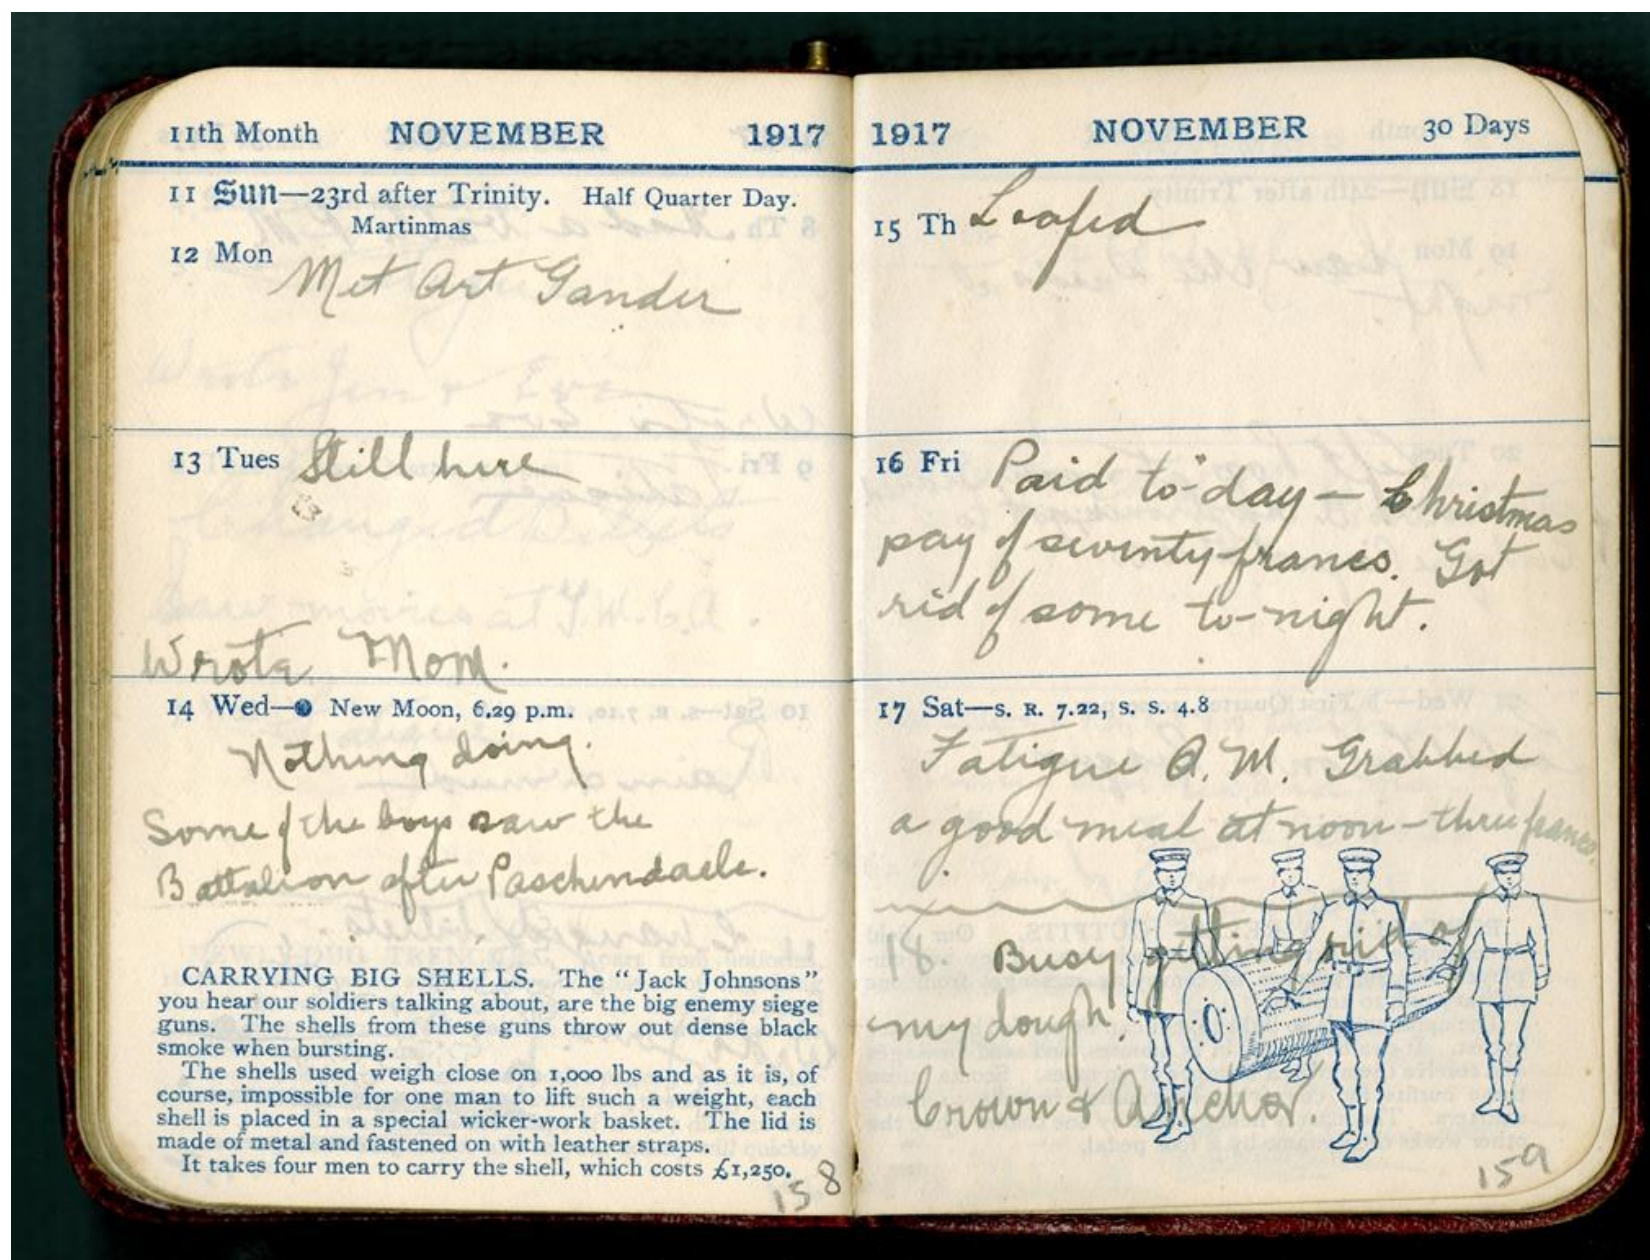 11th Month NOVEMBER 1917
11 Sun—23rd after Trinity. Half Quarter Day.
Martinmas
12 Mon
Met Art Gander
13 Tues Still here
Wrote Mom.
14 Wed—● New Moon, 6.29 p.m.
Nothing doing.
Some of the boys saw the
Battalion after Paschendaele.
CARRYING BIG SHELLS. The "Jack Johnsons"
you hear our soldiers talking about, are the big enemy siege
guns. The shells from these guns throw out dense black
smoke when bursting.
The shells used weigh close on 1,000 lbs and as it is, of
course, impossible for one man to lift such a weight, each
shell is placed in a special wicker-work basket. The lid is
made of metal and fastened on with leather straps.
It takes four men to carry the shell, which costs £1,250.
158
1917 NOVEMBER 30 Days
15 Th Loafed
16 Fri Paid to-day — Christmas
pay of seventy francs. Got
rid of some to-night.
17 Sat—S. R. 7.22, S. S. 4.8
Fatigue A.M. Grabbed
a good meal at noon – three francs.
18. Busy getting rid of
my dough.
Crown & Anchor.
159